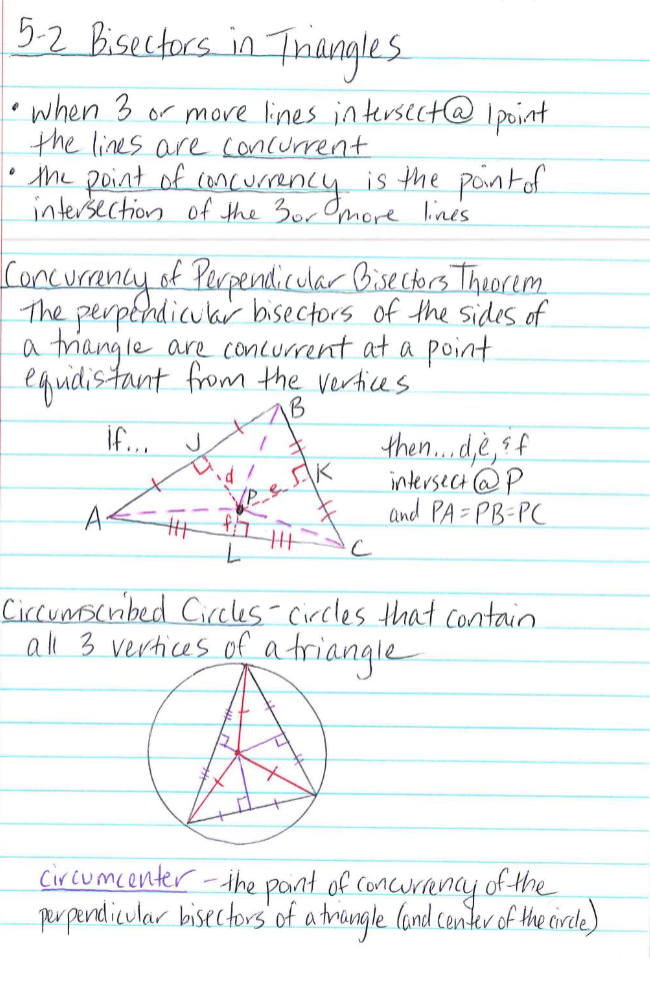 5-2 Bisectors in Triangles
• when 3 or more lines intersect @ 1 point
the lines are concurrent
• the point of concurrency is the point of
intersection of the 3 or more lines
Concurrency of Perpendicular Bisectors Theorem
The perpendicular bisectors of the sides of
a triangle are concurrent at a point
equidistant from the vertices
B
if...
J
then... d, e, & f
d
K
intersect @ P
P
e
and PA=PB=PC
A
f
L
C
Circumscribed Circles - circles that contain
all 3 vertices of a triangle
circumcenter - the point of concurrency of the
perpendicular bisectors of a triangle (and center of the circle)